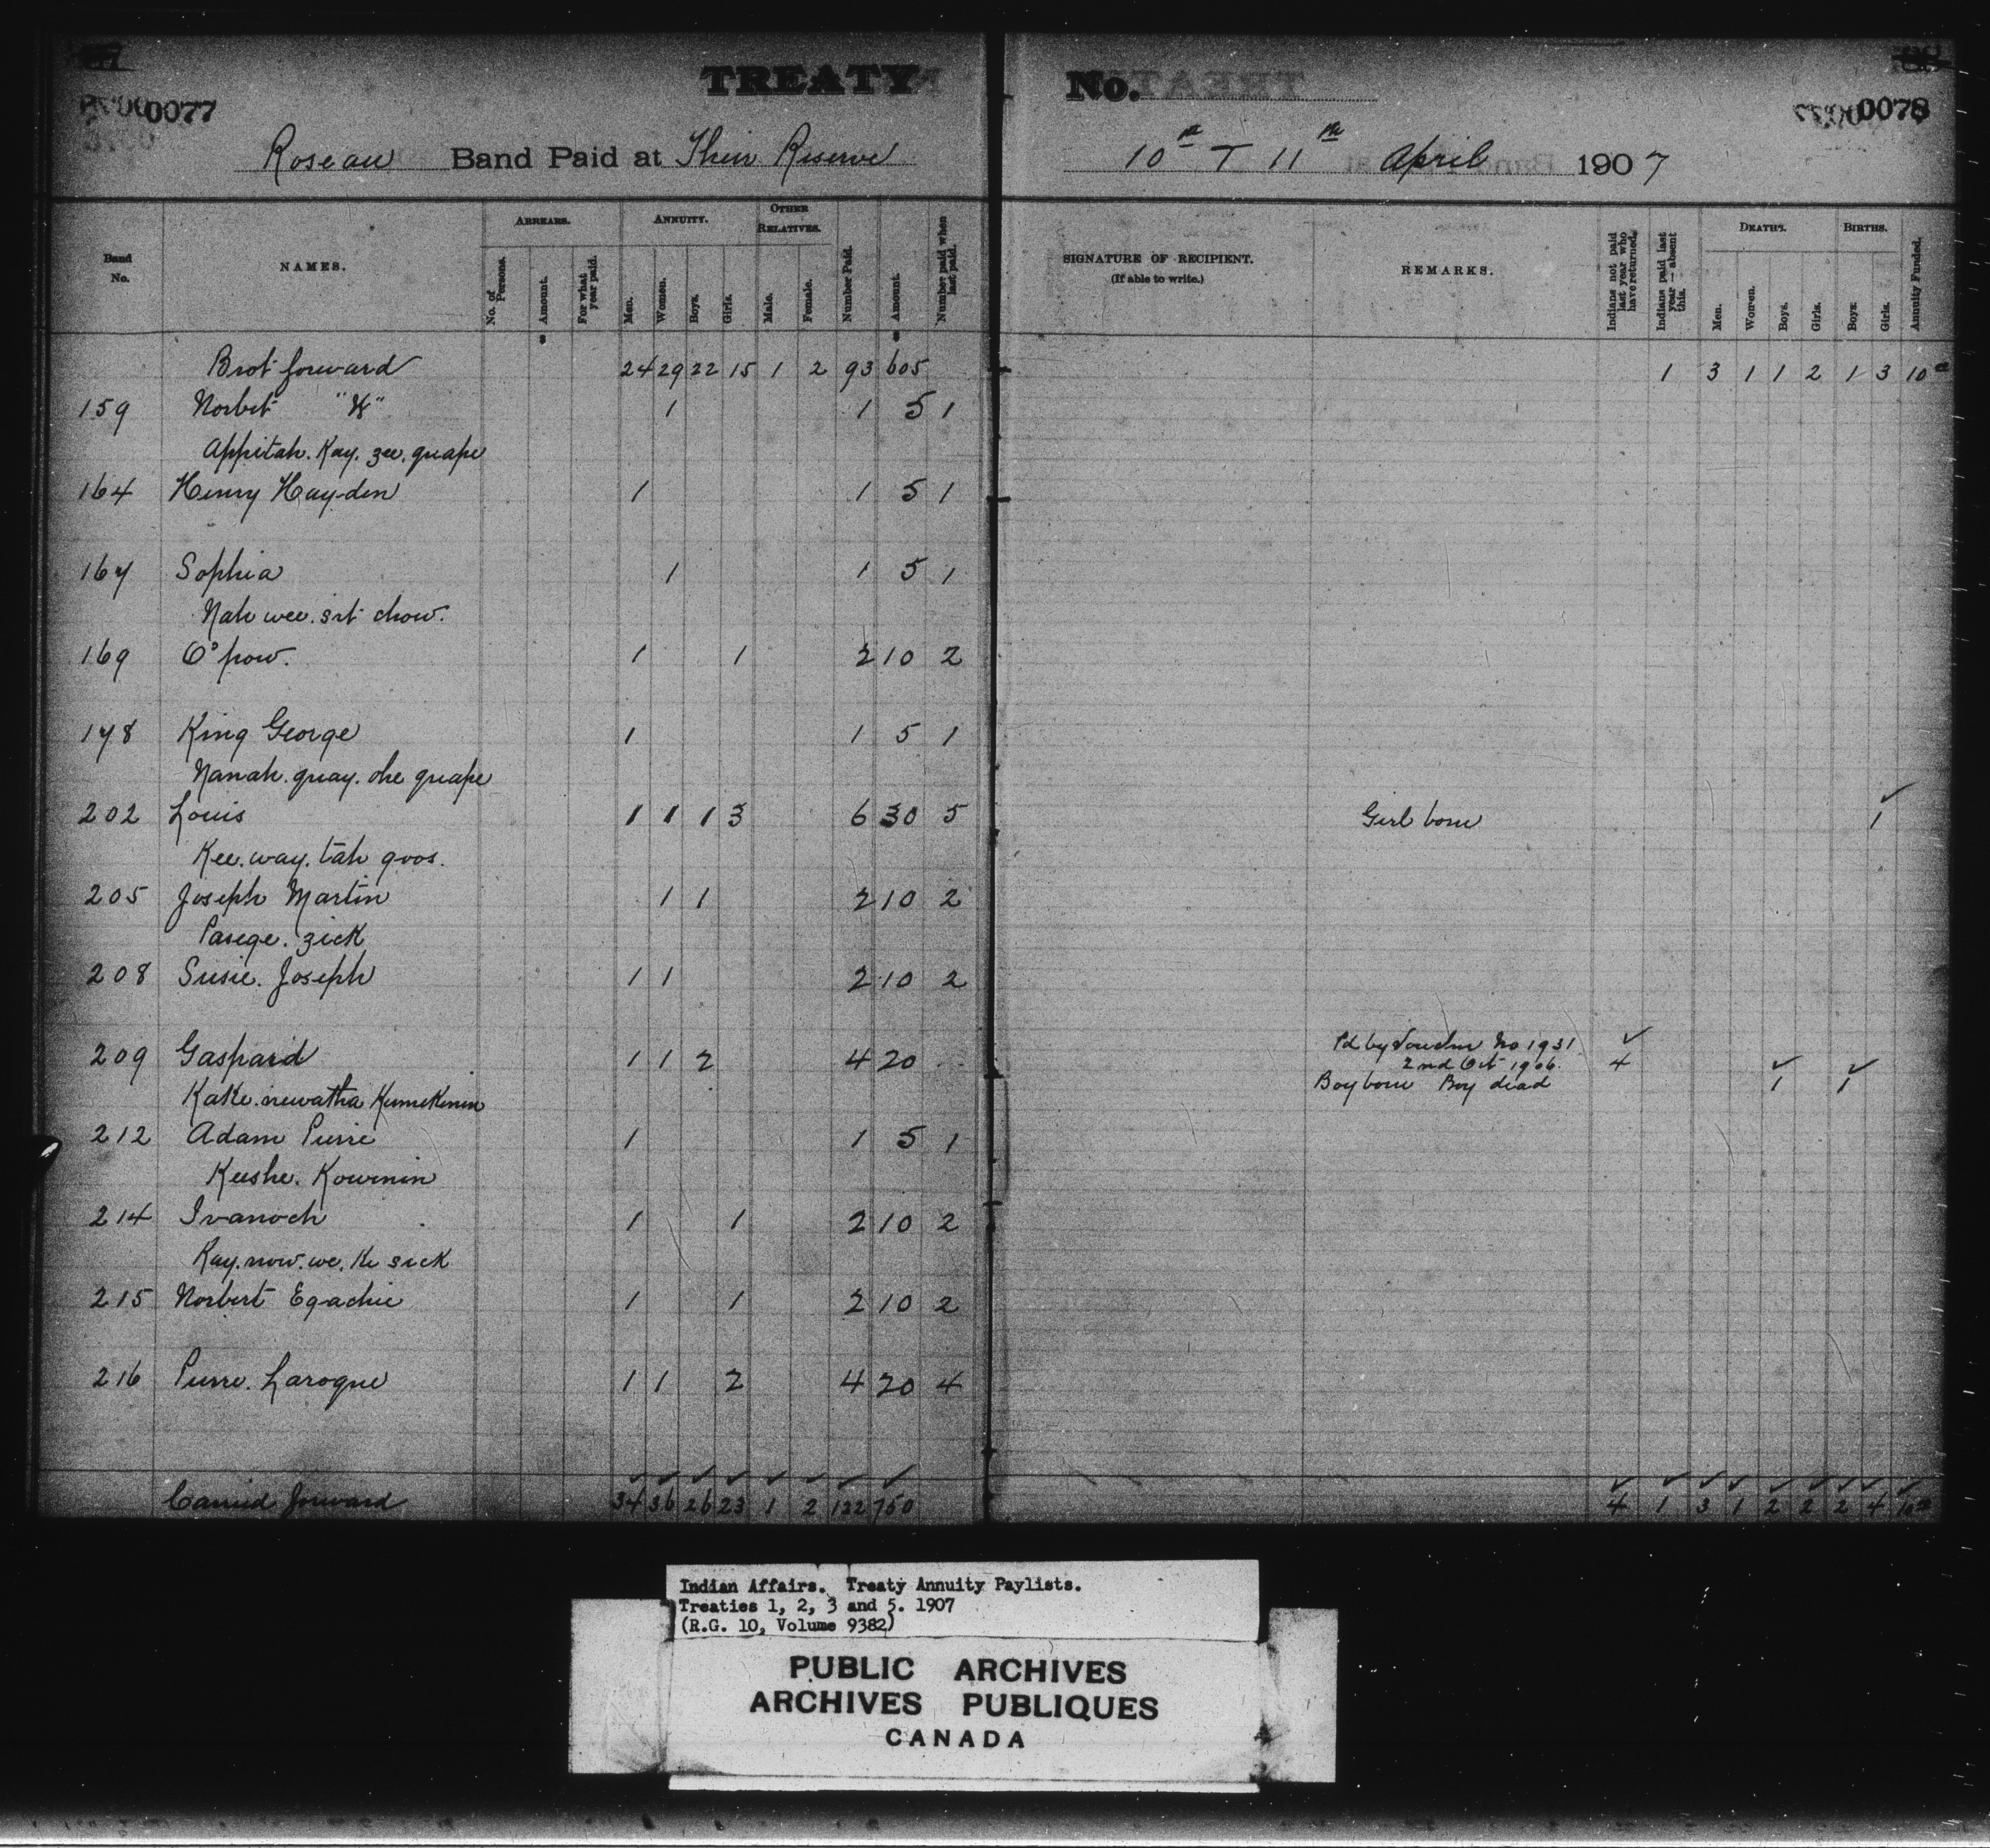 TREATY No.
0077
0078
Roseau Band Paid at Their Reserve 10th & 11th April 1907
Band No. NAMES. ARREARS. ANNUITY. OTHER RELATIVES. Number Paid. Amount. Number paid when last paid. SIGNATURE OF RECIPIENT. (If able to write.) REMARKS. Indians not paid last year who have returned. Indians paid last year - absent this. DEATHS. BIRTHS. Annuity Funded.
No. of Persons. Amount. For what year paid. Men. Women. Boys. Girls. Male. Female. Men. Women. Boys. Girls. Boys. Girls.
Brot forward 24 29 22 15 1 2 93 605 1 3 1 1 2 1 3 10
159 Norbert 1 1 5 1
Appitah. Kay. zee. guape
164 Henry Hay-den 1 1 5 1
167 Sophia 1 1 5 1
Nah wee. sit chow.
169 O'pow. 1 1 2 10 2
178 King George 1 1 5 1
Nanah. guay. che guape
202 Louis 1 1 1 3 6 30 5 Girl born 1
Kee. way. tah goos.
205 Joseph Martin 1 1 2 10 2
Pasege. zick
208 Susie. Joseph 1 1 2 10 2
209 Gaspard 1 1 2 4 20 Pd by Voucher No 1931
2nd Oct 1906. 4
Boy born Boy dead 1 1
Kake. newatha Kumekinin
212 Adam Pierre 1 1 5 1
Keeshe. Kowinin
214 Ivanoch 1 1 2 10 2
Kay. now. we. ke sick
215 Norbert Egachie 1 1 2 10 2
216 Pierre. Laroque 1 1 2 4 20 4
Carried forward 34 36 26 23 1 2 122 750 4 1 3 1 2 2 2 4 10
Indian Affairs. Treaty Annuity Paylists.
Treaties 1, 2, 3 and 5. 1907
(R.G. 10, Volume 9382)
PUBLIC ARCHIVES
ARCHIVES PUBLIQUES
CANADA